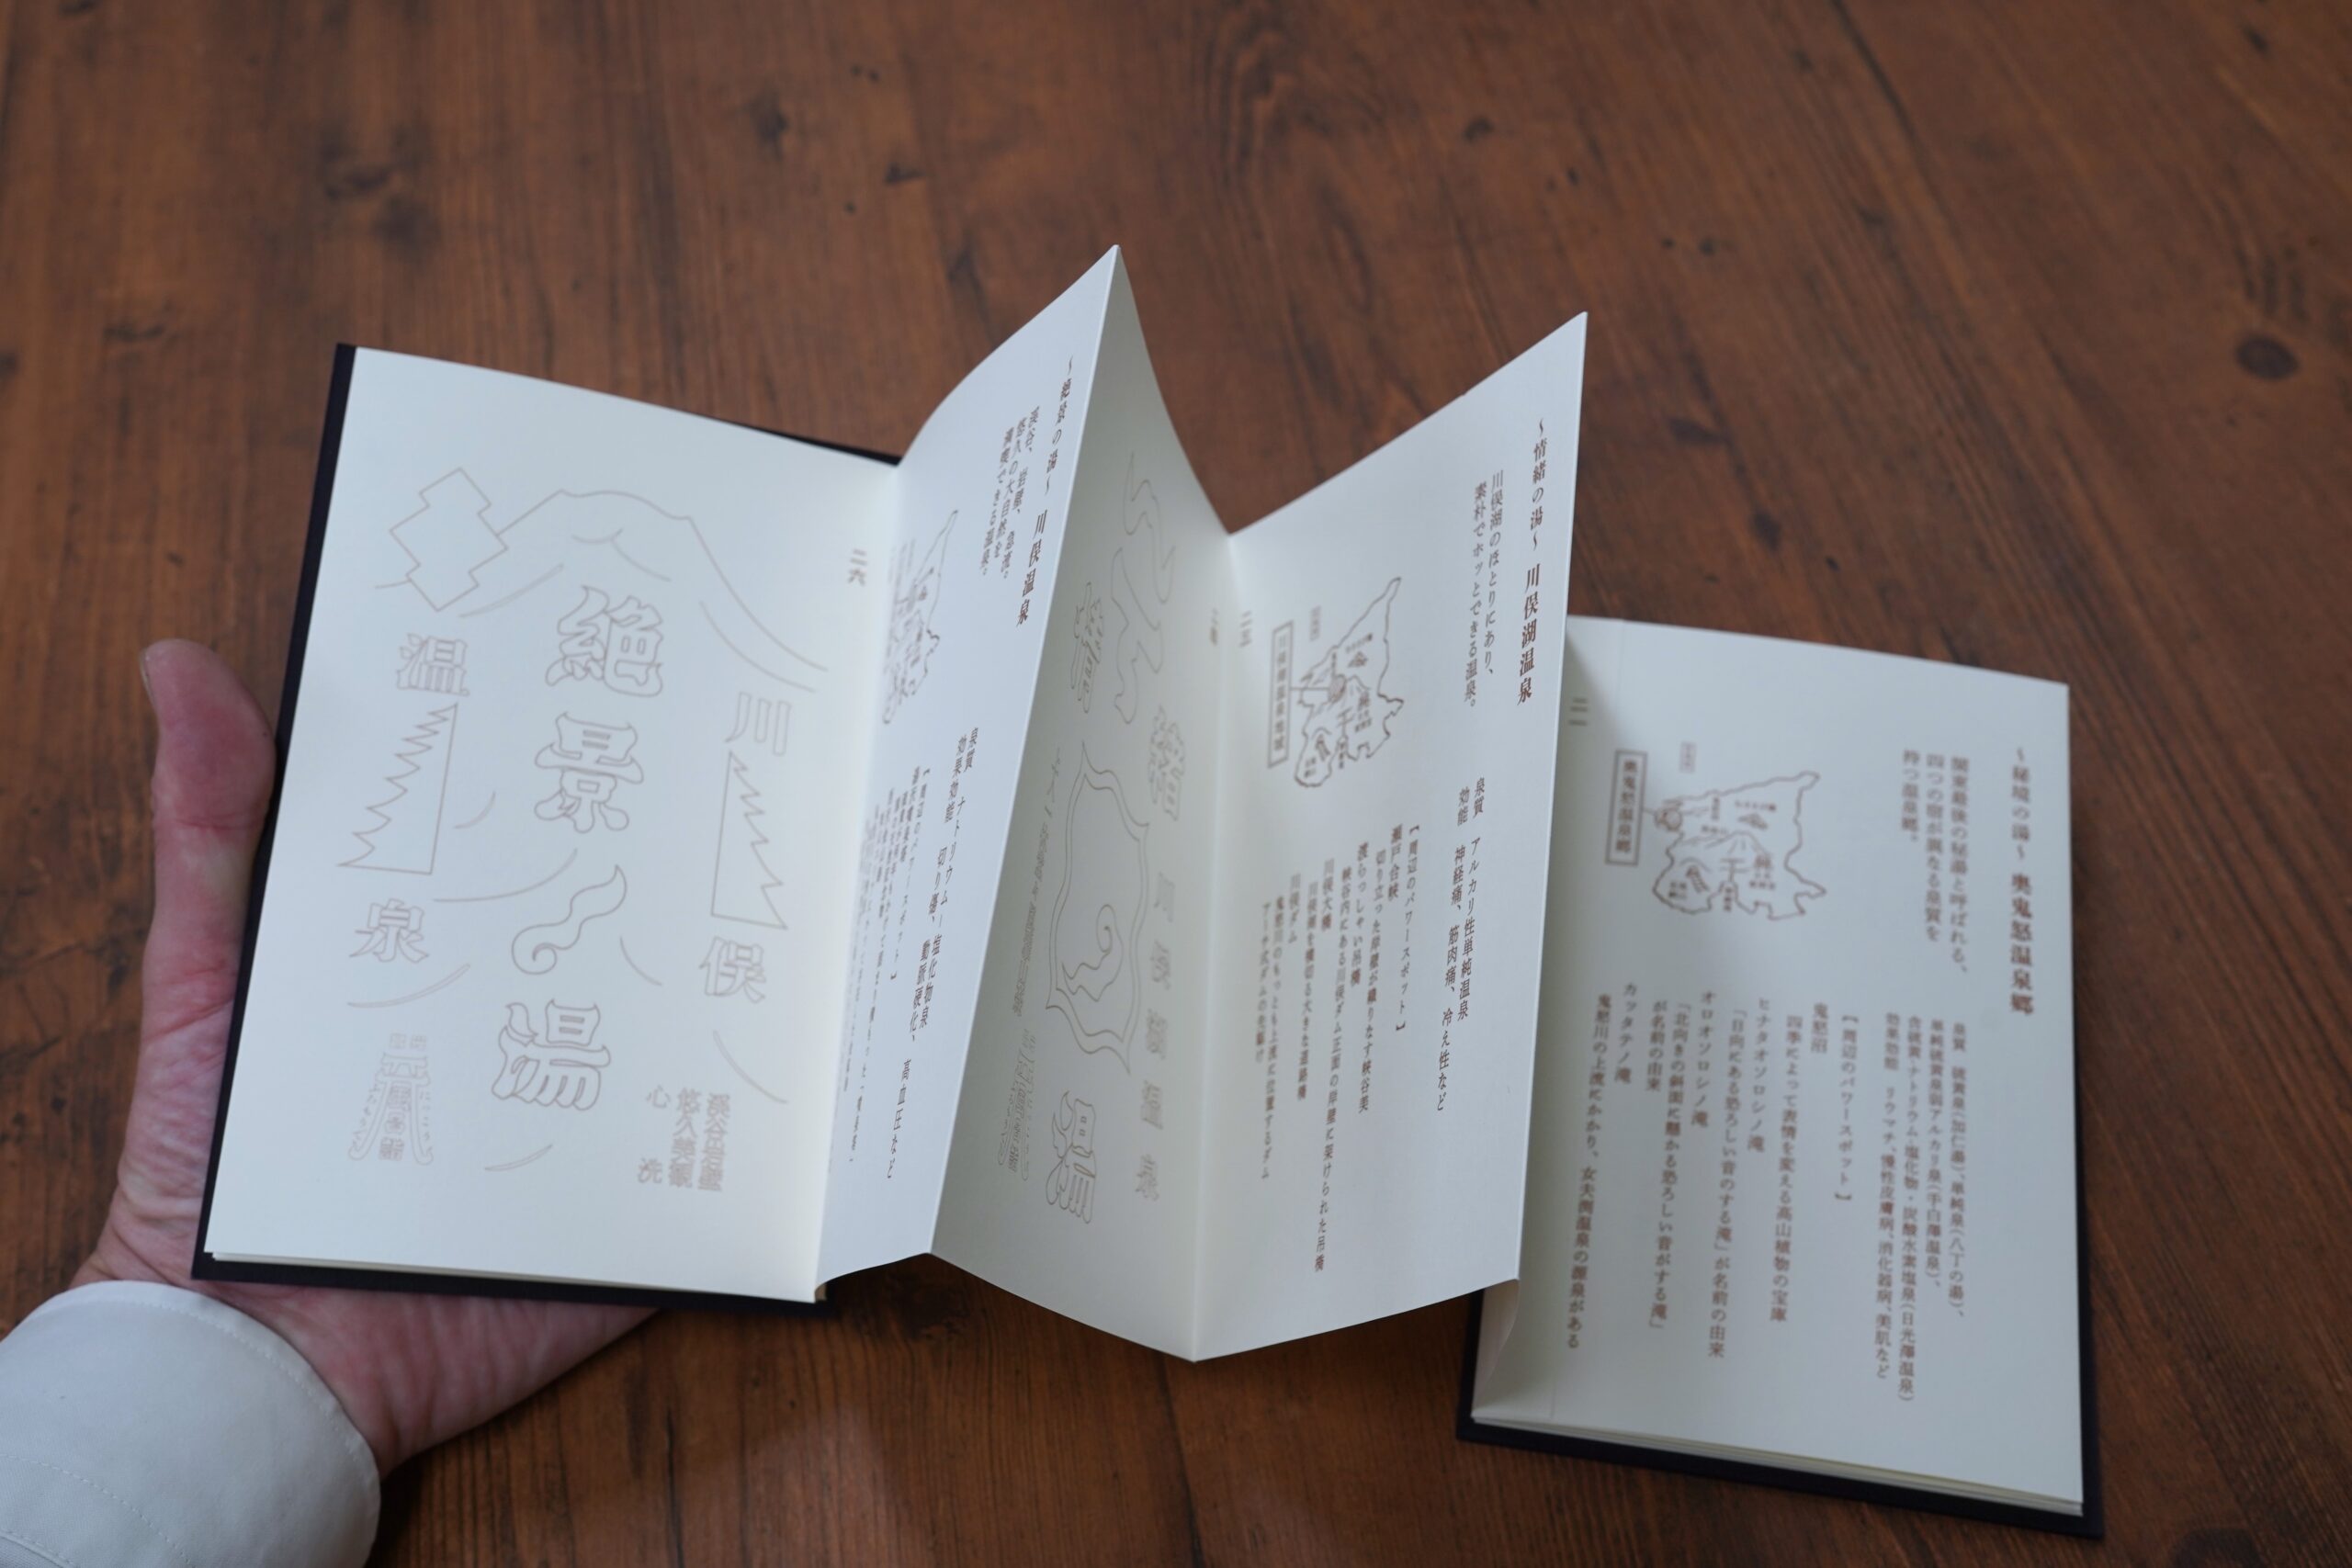 ～秘境の湯～　奥鬼怒温泉郷
関東最後の秘湯と呼ばれる、
四つの宿が異なる泉質を
持つ温泉郷。
奥鬼怒温泉郷
泉質　硫黄泉(加仁湯)、単純泉(八丁の湯)、
単純硫黄泉弱アルカリ泉(手白澤温泉)、
含硫黄・ナトリウム・塩化物・炭酸水素塩泉(日光澤温泉)
効果効能　リウマチ、慢性皮膚病、消化器病、美肌など
【周辺のパワースポット】
鬼怒沼
四季によって表情を変える高山植物の宝庫
ヒナタオソロシノ滝
「日向にある恐ろしい音のする滝」が名前の由来
オロオソロシノ滝
「北向きの斜面に懸かる恐ろしい音がする滝」
が名前の由来
カッタテノ滝
鬼怒川の上流にかかり、女夫渕温泉の源泉がある
二一
～情緒の湯～　川俣湖温泉
川俣湖のほとりにあり、
素朴でホッとできる温泉。
川俣湖温泉地域
泉質　アルカリ性単純温泉
効能　神経痛、筋肉痛、冷え性など
【周辺のパワースポット】
瀬戸合峡
切り立った岸壁が織りなす峡谷美
渡らっしゃい吊橋
峡谷内にある川俣ダム正面の岸壁に架けられた吊橋
川俣大橋
川俣湖を横切る大きな道路橋
川俣ダム
鬼怒川のもっとも上流に位置するダム
アーチ式ダムの先駆け
二五
二四
情緒
湯
川俣湖温泉
～絶景の湯～　川俣温泉
渓谷、岩壁、急流。
悠久の大自然を
満喫できる温泉。
泉質　ナトリウム-塩化物泉
効果効能　切り傷、動脈硬化、高血圧など
【周辺のパワースポット】
二六
川俣
絶景の湯
温泉
渓谷岩壁
悠久美観
心洗